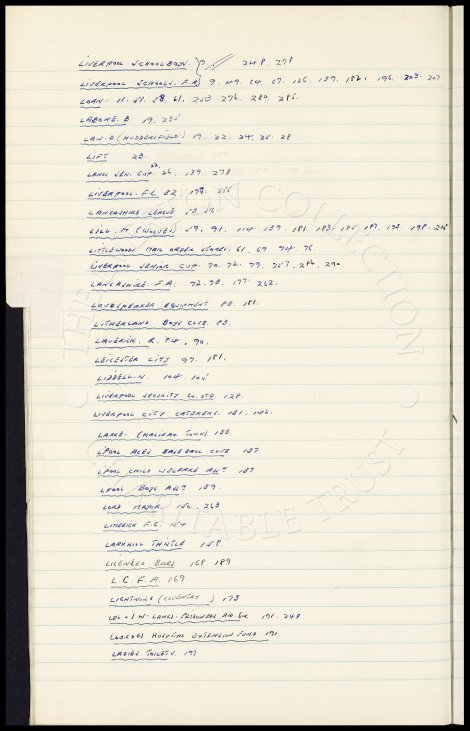 LIVERPOOL SCHOOLBOYS. 248. 278
LIVERPOOL SCHOOLS. F.A. 9. 49. 64. 67. 126. 139. 182. 196. 203. 207
LOAN. 11. 57. 58. 61. 253. 276. 280. 285.
LABONE. B 19. 235
LAW. D (HUDDERSFIELD) 19. 22. 24. 25. 28
LIFT 23.
LANCS SEN. CUP. 26. 139. 278
LIVERPOOL. F.C. 52.
LANCASHIRE LEAGUE
LILL. M. (WOLVES) 59. 91. 114. 139. 181. 183. 185. 187. 198.
LITTLEWOODS MAIL ORDER STORES. 61. 69. 74. 76.
LIVERPOOL SENIOR CUP. 70. 72. 79. 257. 290
LANCASHIRE. F.A. 72. 78. 177. 262.
LOUDSPEAKER EQUIPMENT 80. 181.
LITHERLAND BOYS CLUB. 83.
LAVERICK. R. 84. 90.
LEICESTER CITY. 97. 181.
LIDDELL. W. 104. 105
LIVERPOOL SECURITY Co. LTD 128.
LIVERPOOL CITY CATERERS. 131. 142.
(HALIFAX TOWN) 133.
L'POOL ALEX BASEBALL CLUB 137
LPOOL CHILD WELFARE ASSn 137
LPOOL BOYS ASSn 139.
LORD MAYOR 150. 263
LIMERICK F.C. 154
LARKHILL THISTLE 158.
LICENSED BARS 168. 189
L.C.F.A. 169
LIGHTNING (COVENTRY) 173
S.W. LANCS. PRISONERS AID. Soc 191. 248
HOSPITAL EXTENSION FUND 191
LADIES TOILETS. 197
THE COLLECTION
CHARITABLE TRUST